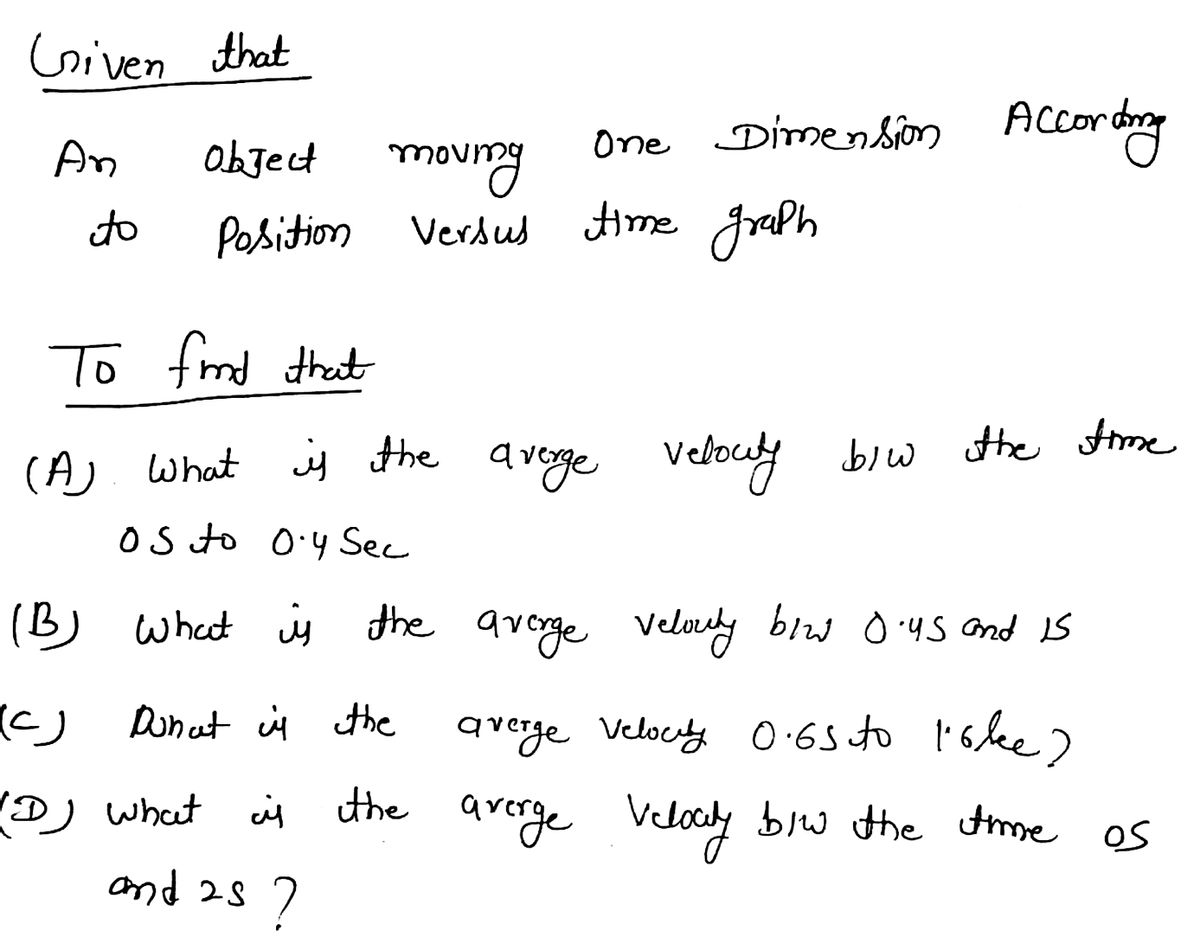 Given that
An Object moving One Dimension According
to Position Versus time graph
To find that
(A) What is the averge velocity b/w the time
0S to 0.4 Sec
(B) What is the averge velocity b/w 0.4S and 1S
(C) What is the averge Velocity 0.6S to 1.6 sec?
(D) What is the averge Velocity b/w the time 0S
and 2S ?